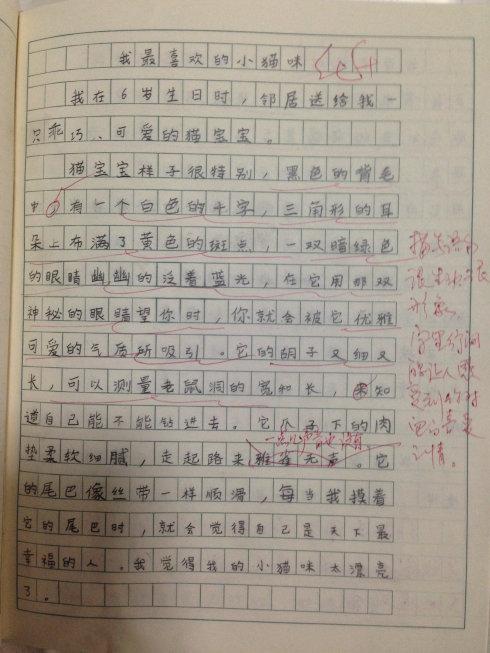 我最喜欢的小猫咪
我在6岁生日时，邻居送给我一
只乖巧、可爱的猫宝宝。
猫宝宝样子很特别，黑色的背毛
中，有一个白色的十字，三角形的耳
朵上布满了黄色的斑点，一双暗绿色
的眼睛幽幽的泛着蓝光，在它用那双
神秘的眼睛望你时，你就会被它优雅
可爱的气质所吸引。它的胡子又细又
长，可以测量老鼠洞的宽和长，来知
道自己能不能钻进去。它爪子下的肉
一点儿声音也没有
垫柔软细腻，走起路来鸦雀无声。它
的尾巴像丝带一样顺滑，每当我摸着
它的尾巴时，就会觉得自己是天下最
幸福的人。我觉得我的小猫咪太漂亮
了。
描写语句
很生动很
形象。
字里行间
能让人感
受到你对
它的喜爱
之情。